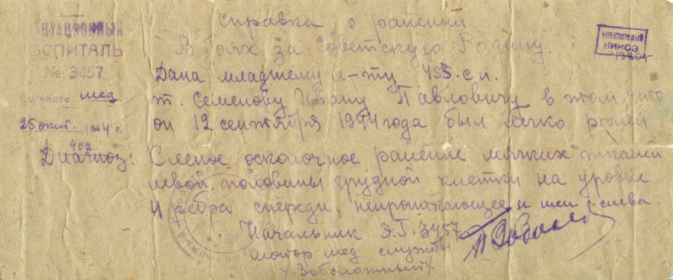 Справка о ранении
В боях за Советскую Родину
ГОСПИТАЛЬ
№ 3457
Дана младшему л-ту 455 с.п.
мед
т. Семенову Ивану Павловичу в том, что
25 окт. 1944 г.
он 12 сентября 1944 года был легко ранен
402
Диагноз: Слепое осколочное ранение мягких тканей
левой половины грудной клетки на уровне
ребра спереди, непроникающее и шеи слева.
Начальник Э.Г. 3457
майор мед службы
/Заболотный/